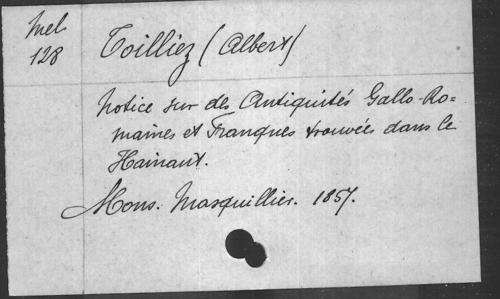 Mel.
128
Toilliez (Albert)
Notice sur des Antiquités Gallo-Ro=
maines et Franques trouvées dans le
Hainaut.
Mons. Masquillier. 1857.